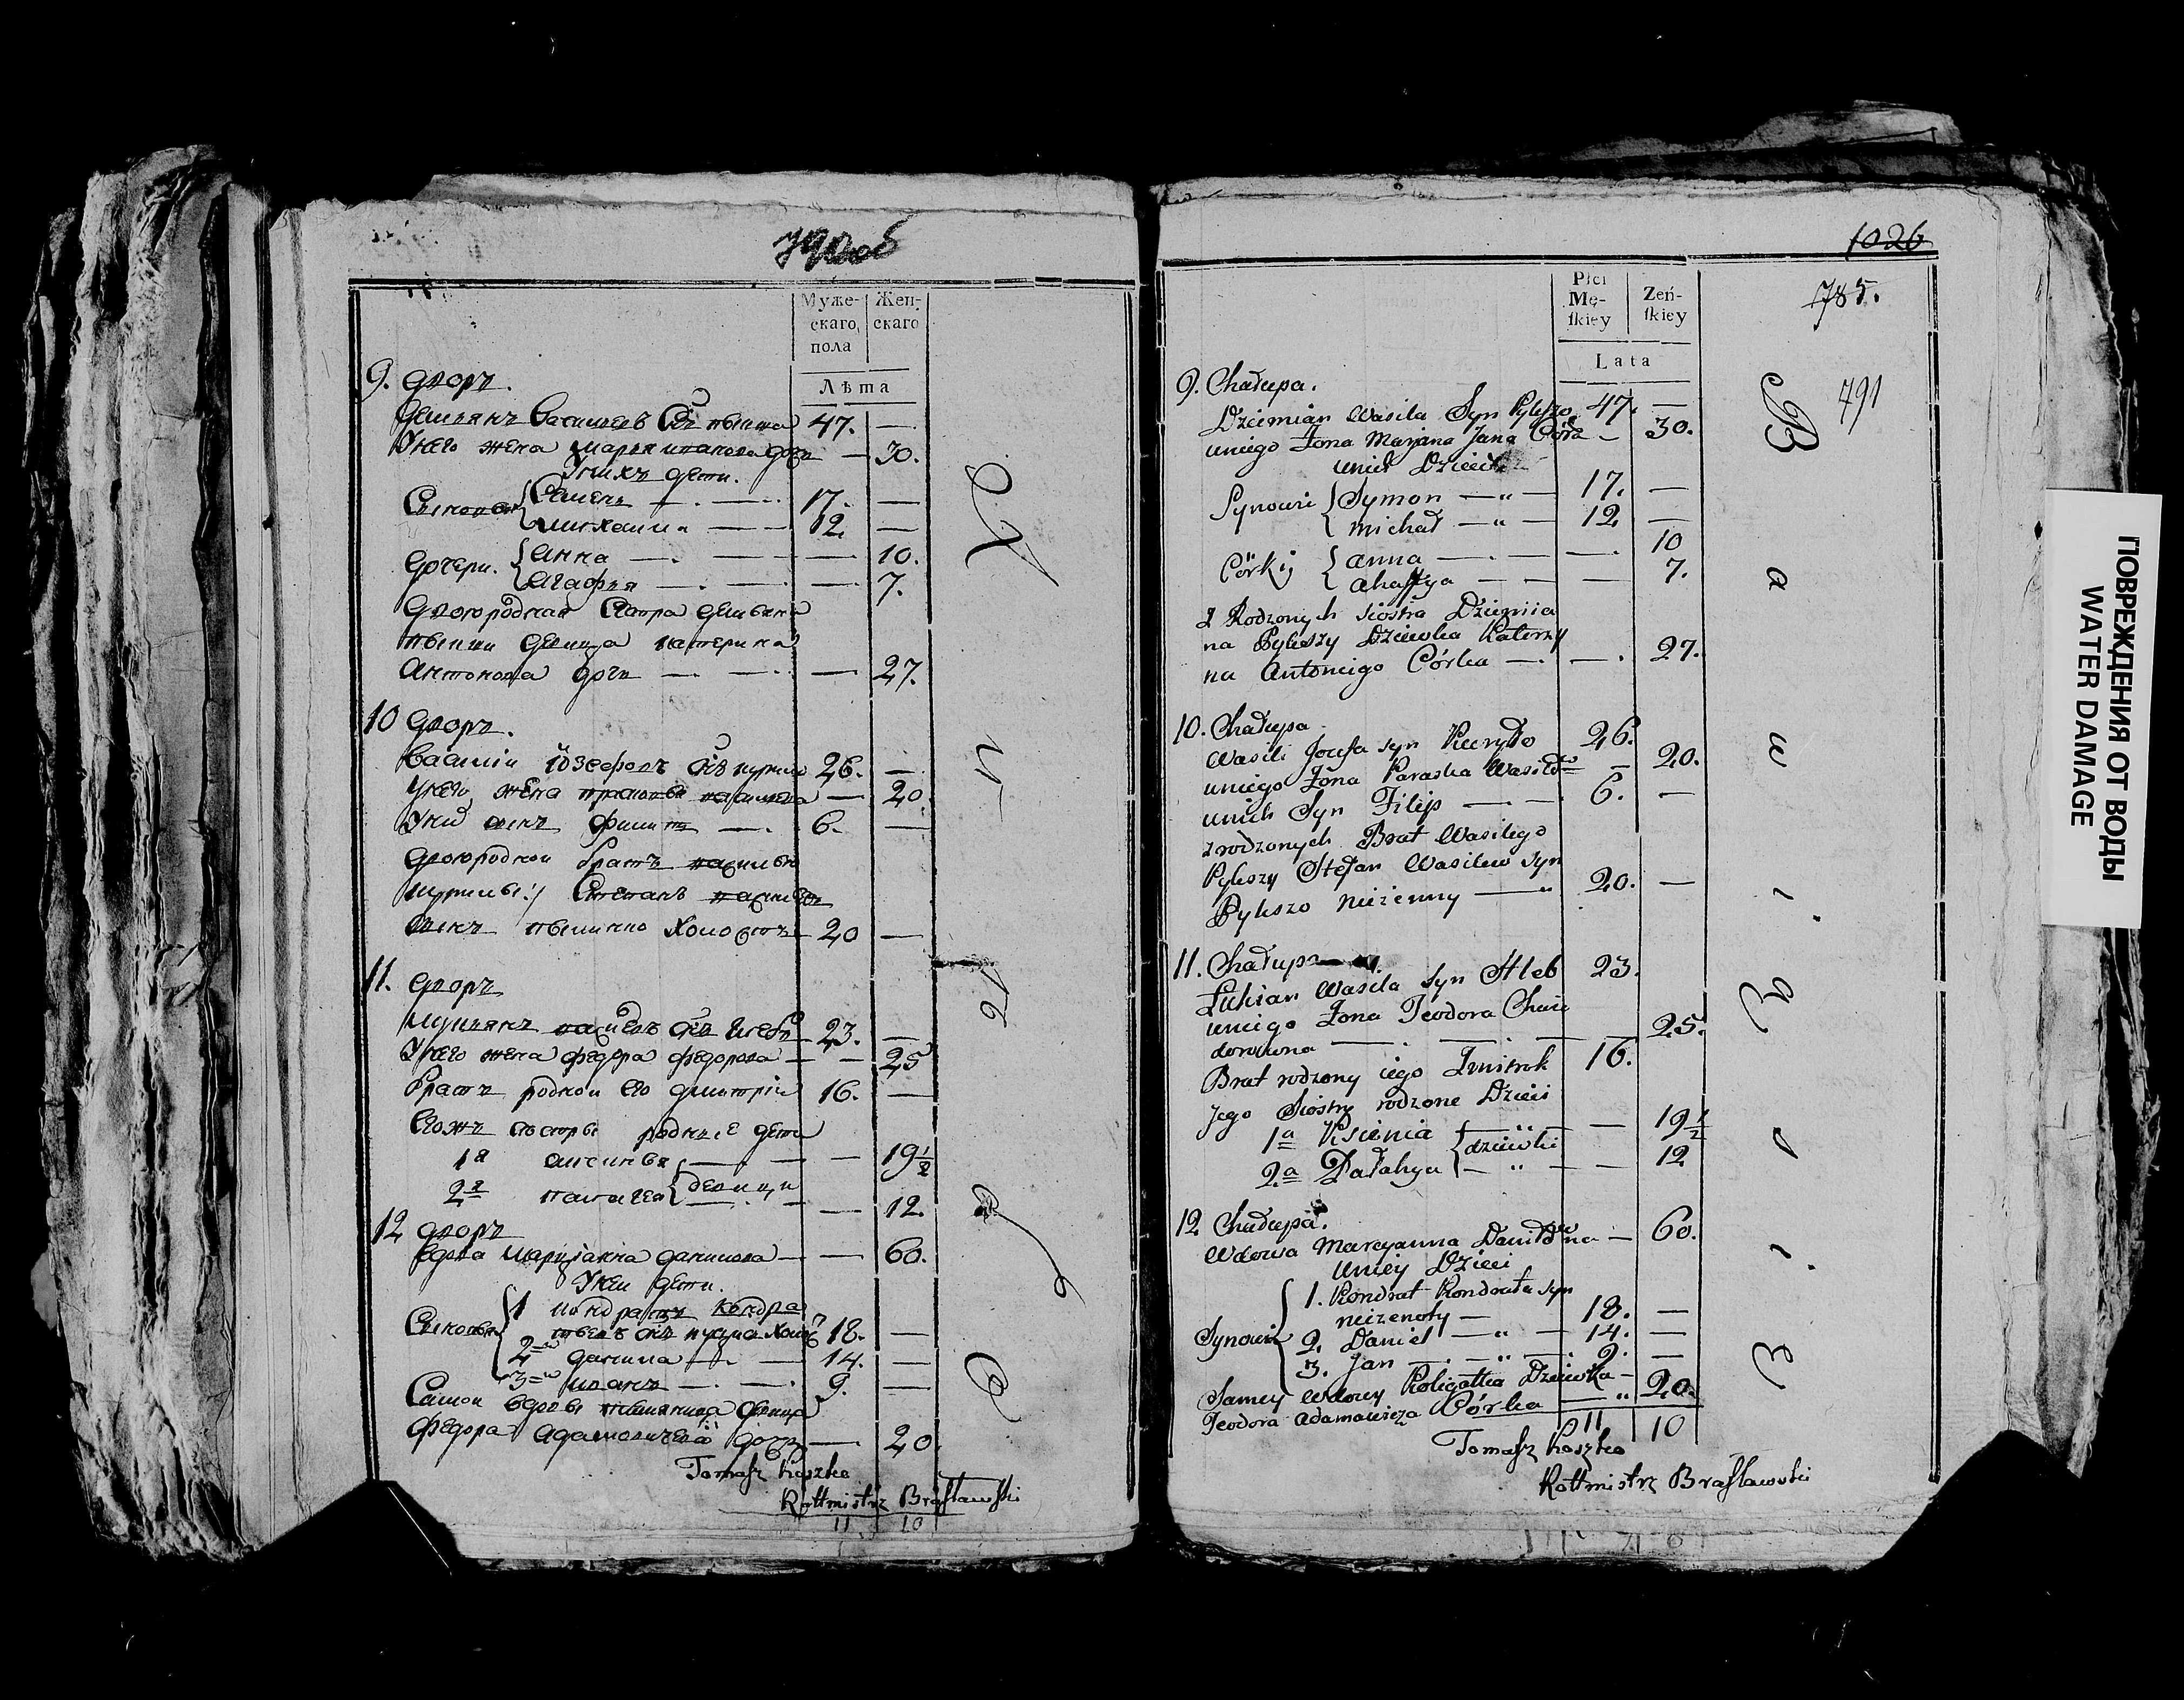 790об
Муже-
скаго
пола
Жен-
скаго
Лѣта
9. дворъ.
Демьянъ Васильевъ Снъ 47. —
У него жена Марья дочь — 30.
У нихъ дети.
Сыновья { Семенъ — 17. —
Михаила — 12. —
Дочери. { Анна — 10.
Агафья — 7.
Двоюродная Сестра Демьяна
девица катерина
Антонова дочь — — 27.
10 дворъ.
Василiй Юзефовъ Снъ 26. —
У него жена — 20.
У них сынъ Филипъ — 6. —
Двоюродной братъ
Степанъ
20 —
11. дворъ
Лукьянъ Снъ 23. —
У него жена Федора Федорова — — 25
Братъ родной его Дмитрiй 16. —
Егожъ сестры родные дети
1я — 19 1/2
2я { девици — 12.
12 дворъ
Вдова Марцiанна данилова — — 60.
У неи дети.
Сыновья { 1 кондратъ кондра
тьевъ снъ 18. —
2 данила — 14. —
3 иванъ — 9. —
Самои вдовы девица
Федора Адамовичева дочь — 20
Tomasz Koszko
Rottmistrz Brasławski
11 10
1026
785.
791
Płci
Mę-
skiey
Zeń-
skiey
Lata
9. Chałupa.
Dziemian Wasila Syn Pyleszo 47. —
uniego Żona Maryana Jana Córa — 30.
unich Dzieci
Synowie { Symon — " — 17. —
Michał — " — 12. —
Córky { Anna — 10
Ahafya — 7.
z Rodzonych Siostra Dziemia
na Pyleszy Dziewka Katerzy
na Antoniego Córka — 27.
10. Chałupa
Wasili Jozefa Syn Kuryło 26.
uniego Żona Paraska — 20.
unich Syn Filip — 6. —
z rodzonych Brat Wasilego
Pyleszy Stefan Wasilew Syn
Pyleszo nieżenny — " 20. —
11. Chałupa
Łukian Wasila Syn Hleb 23.
uniego Żona Teodora Chwie
dorowna — 25.
Brat rodzony iego Dmitrok 16.
Jego Siostry rodzone Dzieci
1a Ksienia { — 19 1/2
2a Pałahya { dziewki — 12
12 Chałupa.
Wdowa Maryanna — 60.
uniey Dzieci
Synowie { 1. Kondrat Kondrata Syn
nieżenoty — 18. —
2. Daniel — " — 14. —
3. Jan — " — 9. —
Samey Wdowy Dziewka —
Teodora Adamowicza Córka — " 20.
11 10
Tomasz Koszko
Rottmistrz Brasławski
ПОВРЕЖДЕНИЯ ОТ ВОДЫ
WATER DAMAGE